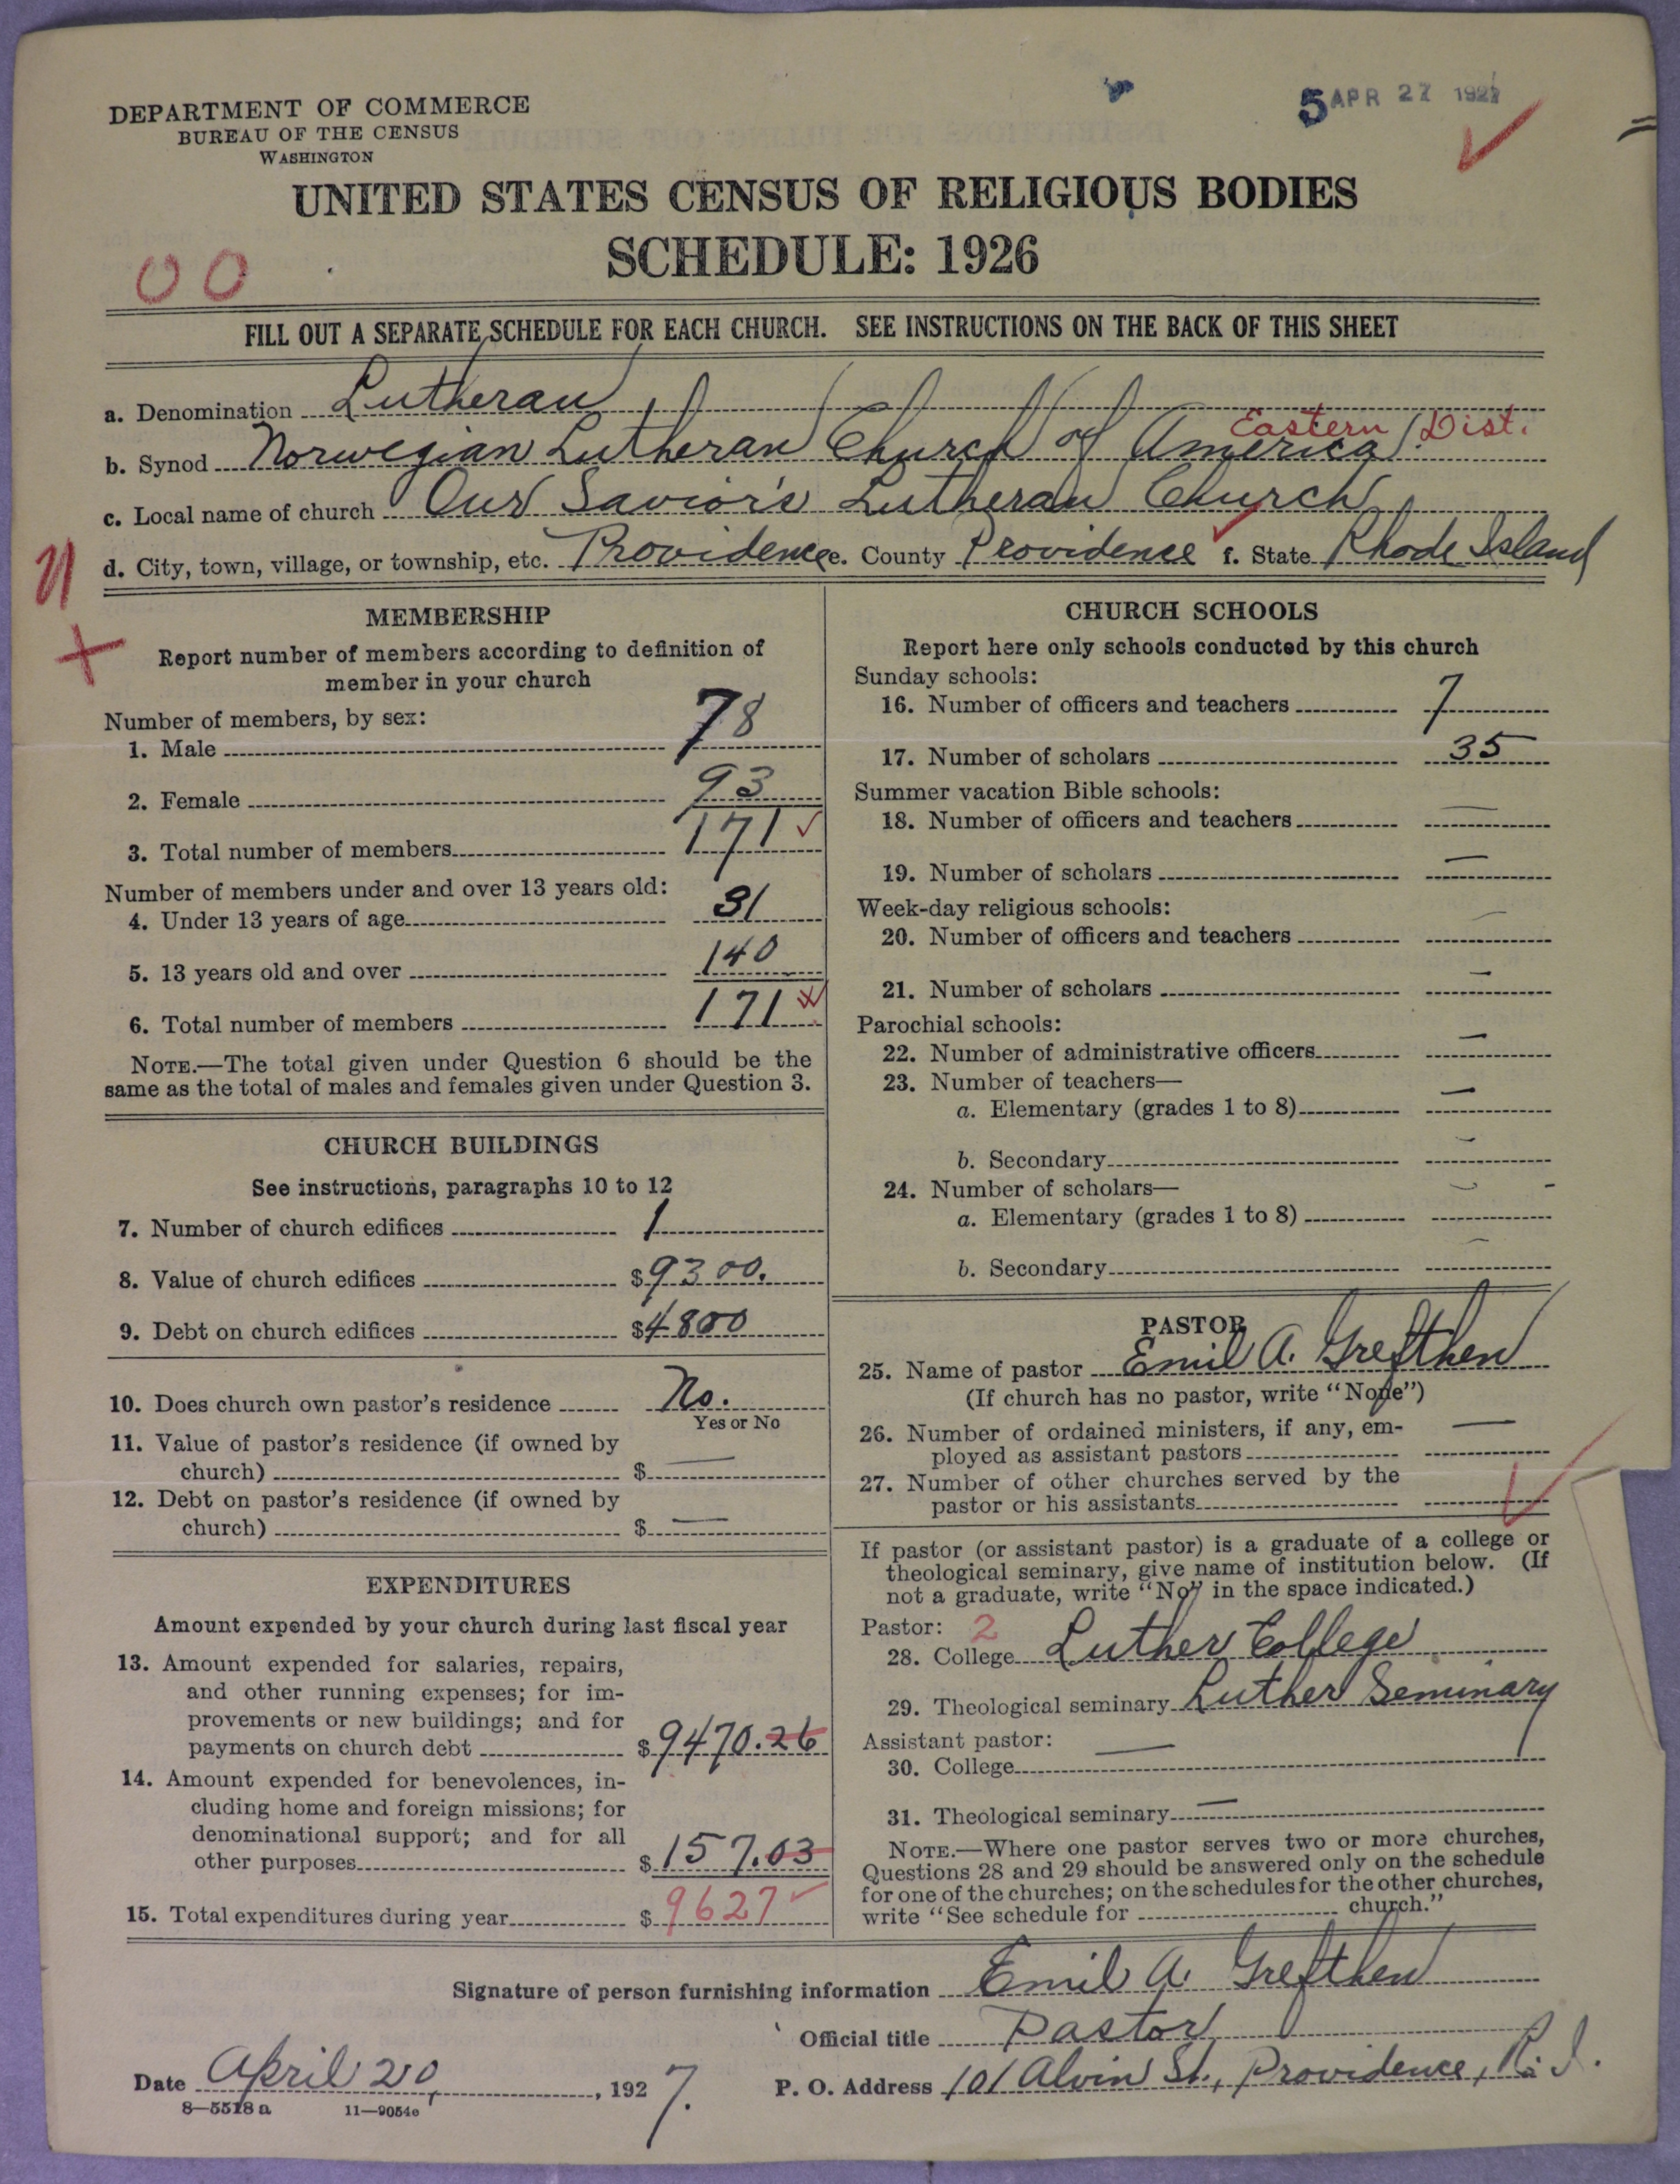 5 APR 27 1927
DEPARTMENT OF COMMERCE
BUREAU OF THE CENSUS
WASHINGTON
UNITED STATES CENSUS OF RELIGIOUS BODIES
SCHEDULE: 1926
00
FILL OUT A SEPARATE SCHEDULE FOR EACH CHURCH. SEE INSTRUCTIONS ON THE BACK OF THIS SHEET
a. Denomination Lutheran
b. Synod Norwegian Lutheran Church of America. Eastern Dist.
c. Local name of church Our Savior's Lutheran Church
d. City, town, village, or township, etc. Providence e. County Providence f. State Rhode Island
MEMBERSHIP
Report number of members according to definition of
member in your church
Number of members, by sex:
1. Male 78
2. Female 93
3. Total number of members 171 ✓
Number of members under and over 13 years old:
4. Under 13 years of age 31
5. 13 years old and over 140
6. Total number of members 171
NOTE.—The total given under Question 6 should be the
same as the total of males and females given under Question 3.
CHURCH BUILDINGS
See instructions, paragraphs 10 to 12
7. Number of church edifices 1
8. Value of church edifices $9300.
9. Debt on church edifices $4800
10. Does church own pastor's residence No.
Yes or No
11. Value of pastor's residence (if owned by
church) $ —
12. Debt on pastor's residence (if owned by
church) $ —
EXPENDITURES
Amount expended by your church during last fiscal year
13. Amount expended for salaries, repairs,
and other running expenses; for im-
provements or new buildings; and for
payments on church debt $9470.26
14. Amount expended for benevolences, in-
cluding home and foreign missions; for
denominational support; and for all
other purposes $157.03
15. Total expenditures during year $9627 ✓
CHURCH SCHOOLS
Report here only schools conducted by this church
Sunday schools:
16. Number of officers and teachers 7
17. Number of scholars 35
Summer vacation Bible schools:
18. Number of officers and teachers —
19. Number of scholars —
Week-day religious schools:
20. Number of officers and teachers —
21. Number of scholars —
Parochial schools:
22. Number of administrative officers —
23. Number of teachers—
a. Elementary (grades 1 to 8) —
b. Secondary —
24. Number of scholars—
a. Elementary (grades 1 to 8) —
b. Secondary —
PASTOR
25. Name of pastor Emil A. Grefthen
(If church has no pastor, write "None")
26. Number of ordained ministers, if any, em-
ployed as assistant pastors —
27. Number of other churches served by the
pastor or his assistants
If pastor (or assistant pastor) is a graduate of a college or
theological seminary, give name of institution below. (If
not a graduate, write "No" in the space indicated.)
Pastor: 2
28. College Luther College
29. Theological seminary Luther Seminary
Assistant pastor:
30. College —
31. Theological seminary —
NOTE.—Where one pastor serves two or more churches,
Questions 28 and 29 should be answered only on the schedule
for one of the churches; on the schedules for the other churches,
write "See schedule for church."
Signature of person furnishing information Emil A. Grefthen
Official title Pastor
Date April 20, 1927.
P. O. Address 101 Alvin St., Providence, R. I.
8—5518 a 11—9054c